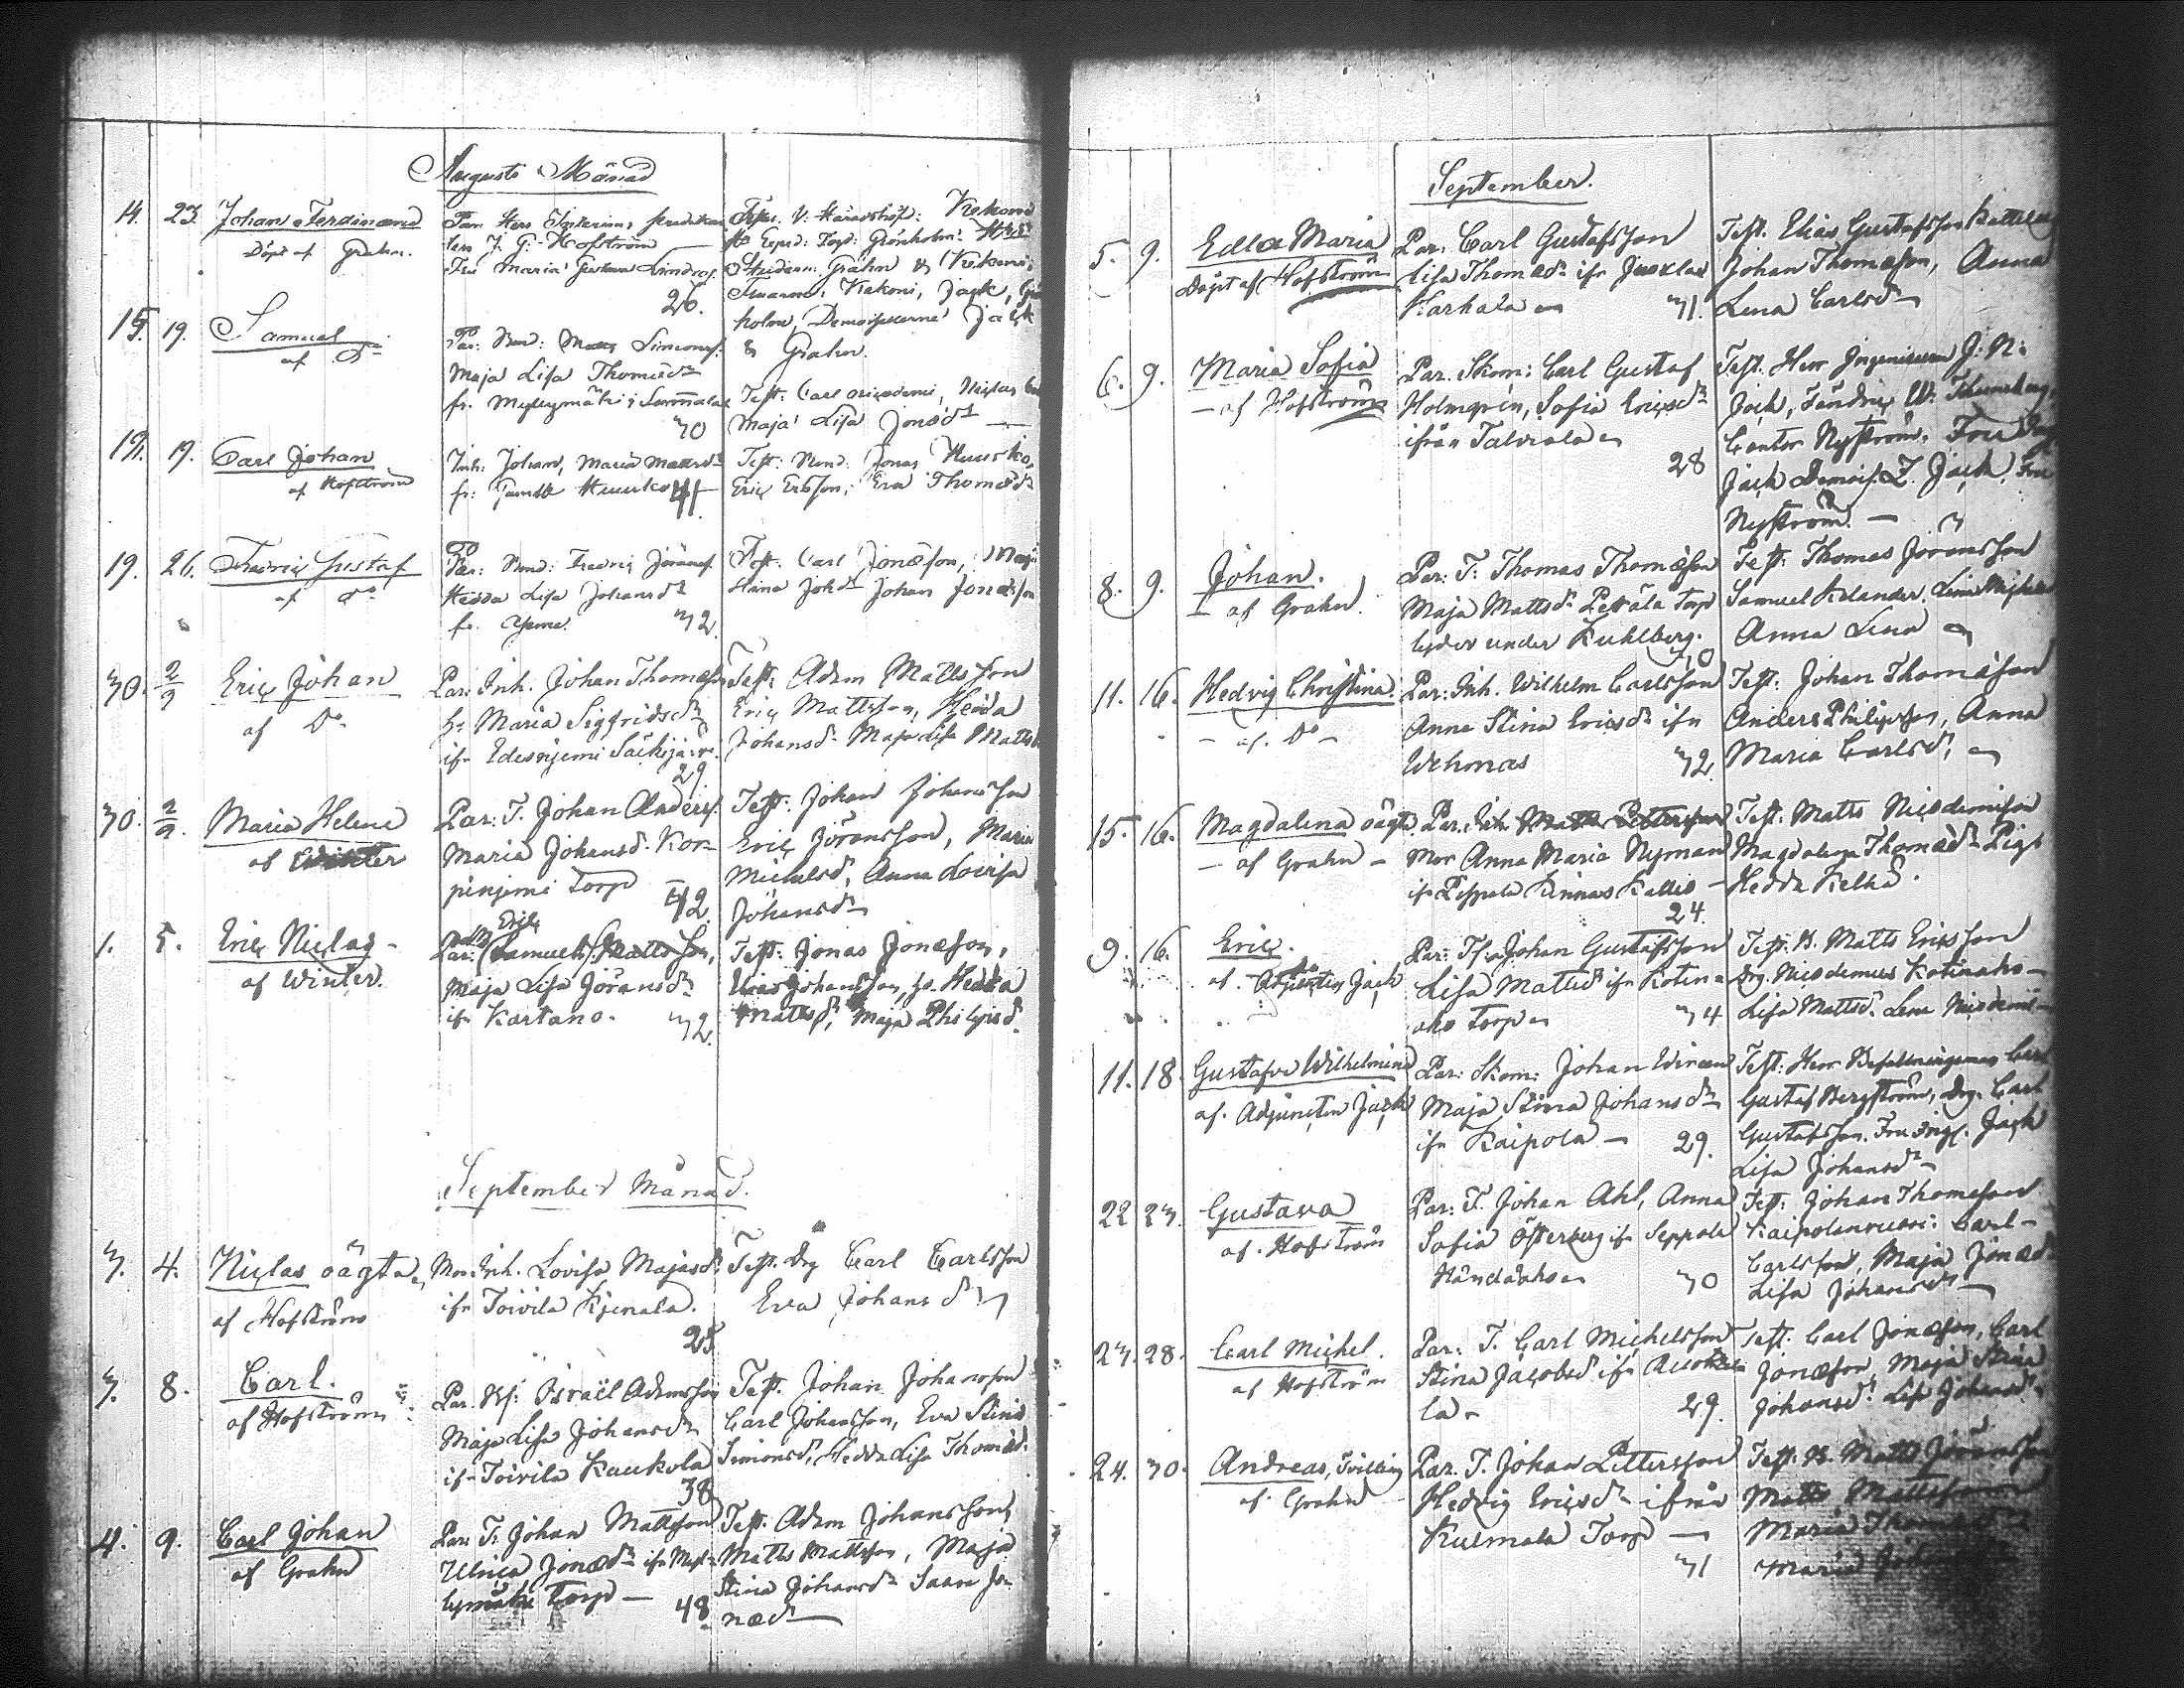 Augusti Månad
14. 23. Johan Ferdinand
Döpt af Grahn.
Par. Herr Inspectoren
J. G. Hofström
Fru Maria Gustava Lindros
26.
Test. V. Häradshöfd: Krekoni
Grönholm
Studeran: Grahn & Krekoni,
Krekoni, Jack,
holm, Demoisellerne Jack
& Grahn.
15. 19. Samuel
af Do
Par: Bond: Matts Simonss.
Maja Lisa Thomædr
fr.
30
Test: Carl Nicodemi, Niclas
Maja Lisa Jonædr
19. Carl Johan
af Hofström
Inh: Johan, Maria Mattsdr
fr.
Test: Bond: Jonas Huusko,
Eric Ersson, Eva Thomædr
19. 26. Fredric Gustaf
af do
Par: Bond: Fredric Göranss.
Hedda Lisa Johansdr
32.
Test. Carl Jonæson, Maja
Stina Johdr Johan Jonæson
30. 2/9 Eric Johan
af Do
Par: Inh. Johan Thomæson
h. Maria Sigfridsdr
ifr Edesnjemi Säkijärvi
29
Test: Adam Mattsson
Eric Mattsson, Hedda
Johansdr Maja Lisa Mattsdr
30. 2/9. Maria Helena
af Winter
Par: T. Johan Anderss.
Maria Johansd. Kor-
pinjemi Torp
42.
Test: Johan Johansson
Eric Jöransson, Maria
Michelsd. Anna Lovisa
Johansdr
1. 5. Eric Niclas
af Winter.
Par: Samuel Mattsson,
Maja Lisa Göransdr
ifr Kartano. 32.
Test: Jonas Jonæson,
Johansson, h. Hedda
Mattsd, Maja Philipsd.
September Månad.
3. 4. Niclas oägta
af Hofström
Mor. Inh. Lovisa Majasdr
ifr Toivila Kjenala.
25
Test. Drg Carl Carlsson
Eva Johansdr
3. 8. Carl.
af Hofström
Par. Israël Adamsson
Maja Lisa Johansdr
ifr Toivila Kaukola
38
Test. Johan Johansson
Carl Johansson, Eva Stina
Simonsd, Hedda Lisa Thomæd.
4. 9. Carl Johan
af Grahn
Par: T. Johan Mattsson
Ulrica Jonædr ifr Myl-
lymäki Torp — 48
Test: Adam Johansson,
Matts Mattsson, Maja
Stina Johansdr Saara Jo-
nædr
September.
5. 9. Edla Maria
Döpt af Hofström
Par: Carl Gustafsson
Lisa Thomædr ifr Juoxlax
Karhala 31.
Test. Elias Gustafsson
Johan Thomæson, Anna
Lena Carlsdr
6. 9. Maria Sofia
— af Hofström
Par. Skom: Carl Gustaf
Holmqvin, Sofia Ericsdr
ifrån Talviala
28
Test. Herr Ingenieuren J. N.
Jack, Fändric W. Thuneberg,
Cantor Nyström, Fru
Jack Demois. L. Jack, Fru
Nyström —
8. 9. Johan.
— af Grahn.
Par: T. Thomas Thomæson
Maja Mattsdr Pätäla Torp
lyder under Kuhlberg.
30
Test: Thomas Jöransson
Samuel Kelander, Lena
Anna Lena
11. 16. Hedvig Christina.
— af Do —
Par: Inh. Wilhelm Carlsson
Anna Stina Ericsdr ifn
Wehmas 32.
Test: Johan Thomæson
Anders Philipsson, Anna
Maria Carlsdr
15. 16. Magdalena oägta
— af Grahn —
Par. Inh. Matts Pettersson
Mor Anna Maria Nyman
ifr Pispala Kinnas Kallio —
24.
Test. Matts Nicodemison
Magdalena Thomædr Piga
Hedda Kelka.
9. 16. Eric.
af Adjuncten Jack
Par: Johan Gustafsson
Lisa Mattsd ifn Kotina-
aho Torp 34
Test. B. Matts Ericsson
Drg. Nicodemus Kotinaho —
Lisa Mattsd. Lena Nicodemi —
11. 18. Gustafva Wilhelmina
af. Adjuncten Jack
Par: Skom: Johan Wiræn
Maja Stina Johansdr
ifr Kaipola — 29.
Test: Herr Befallningsman Carl
Gustaf Bergström, Drg. Carl
Gustafsson. Fru Ing. Jack
Lisa Johansdr
22 23. Gustava
af. Hofström
Par: T. Johan Ahl, Anna
Sofia Österberg ifr Seppola
30
Test. Johan Thomæson
Carl
Carlsson, Maja Jonæd
Lisa Johansdr
23. 28. Carl Michel.
af Hofström
Par: T. Carl Michelsson
Stina Jacobsd ifr
la 29.
Test. Carl Jonæson, Carl
Jonæson, Maja Stina
Johansd. Lisa Johansdr
24. 30. Andreas, Tvilling
af. Grahn
Par. T. Johan Pettersson
Hedvig Ericsdr ifrån
Kulmala Torp —
31
Test. B. Matts Jöransson
Matts Mattsson
Maria
Maria